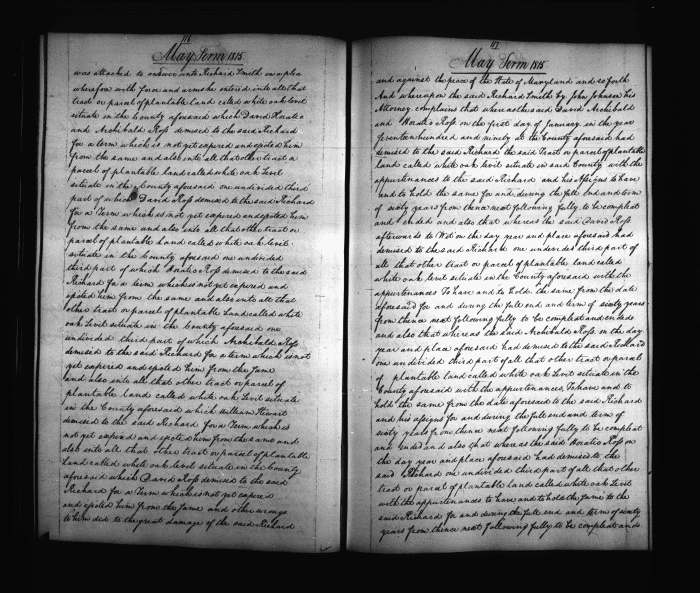 116
May Term 1815
was attached to answer unto Richard Smith in a plea
wherefore with force and arms he entered into all that
tract or parcel of plantable land called white oak level
situate in the County aforesaid which David Horatio
and Archibald Ross demised to the said Richard
for a term which is not yet expired and ejected him
from the same and also into all that other tract or
parcel of plantable land called white oak Levil
situate in the County aforesaid one undivided third
part of which David Ross demised to the said Richard
for a Term which is not yet expired and ejected him
from the same and also into all that other tract or
parcel of plantable land called white oak levil
situate in the County aforesaid one undivided
third part of which Horatio Ross demised to the said
Richard for a term which is not yet expired and
ejected him from the same and also into all that
other tract or parcel of plantable land called white
oak Levil situate in the County aforesaid one
undivided third part of which Archibald Ross
demised to the said Richard for a term which is not
yet expired and ejected him from the Same
and also into all that other tract or parcel of
plantable land called white oak Levil situate
in the County aforesaid which William Stewart
demised to the said Richard for a Term which is
not yet expired and ejected him from the same and
also into all that other tract or parcel of plantable
Land called white oak Levil situate in the County
aforesaid which David Ross demised to the said
Richard for a Term which is not yet expired
and ejected him from the Same and other wrongs
to him did to the great damage of the said Richard
117
May Term 1815
and against the peace of the State of Maryland and so forth
And whereupon the said Richard Smith by John Johnson his
Attorney complains that whereas the said David Archibald
and Horatio Ross on the first day of January in the year
Seventeen hundred and ninety at the County aforesaid had
demised to the said Richard the said Tract or parcel of plantable
land called white oak levil situate in said County with the
appurtenances to the said Richard and his Assigns to have
and to hold the same for and during the full end and term
of sixty years from thence next following fully to be compleat
and ended and also that whereas the said David Ross
afterwards to Wit on the day and year and place aforesaid had
demised to the said Richard one undivided third part of
all that other tract or parcel of plantable land called
white oak levil situate in the County aforesaid with the
appurtenances To have and to hold the same from the date
aforesaid for and during the full end and term of sixty years
from thence next following fully to be compleat and ended
and also that whereas the said Archibald Ross on the day
year and place aforesaid had demised to the said Richard
one undivided third part of all that other tract or parcel
of plantable land called white oak Levil situate in the
County aforesaid with the appurtenances To have and to
hold the same from the date aforesaid to the said Richard
and his assigns for and during the full end and term of
sixty years from thence next following fully to be compleat
and ended and also that where as the said Horatio Ross on
the day year and place aforesaid had demised to the
said Richard one undivided third part of all that other
tract or parcel of plantable land called white oak Levil
with the appurtenances to have and to hold the Same to the
said Richard for and during the full end and term of sixty
years from thence next following fully to be compleat and